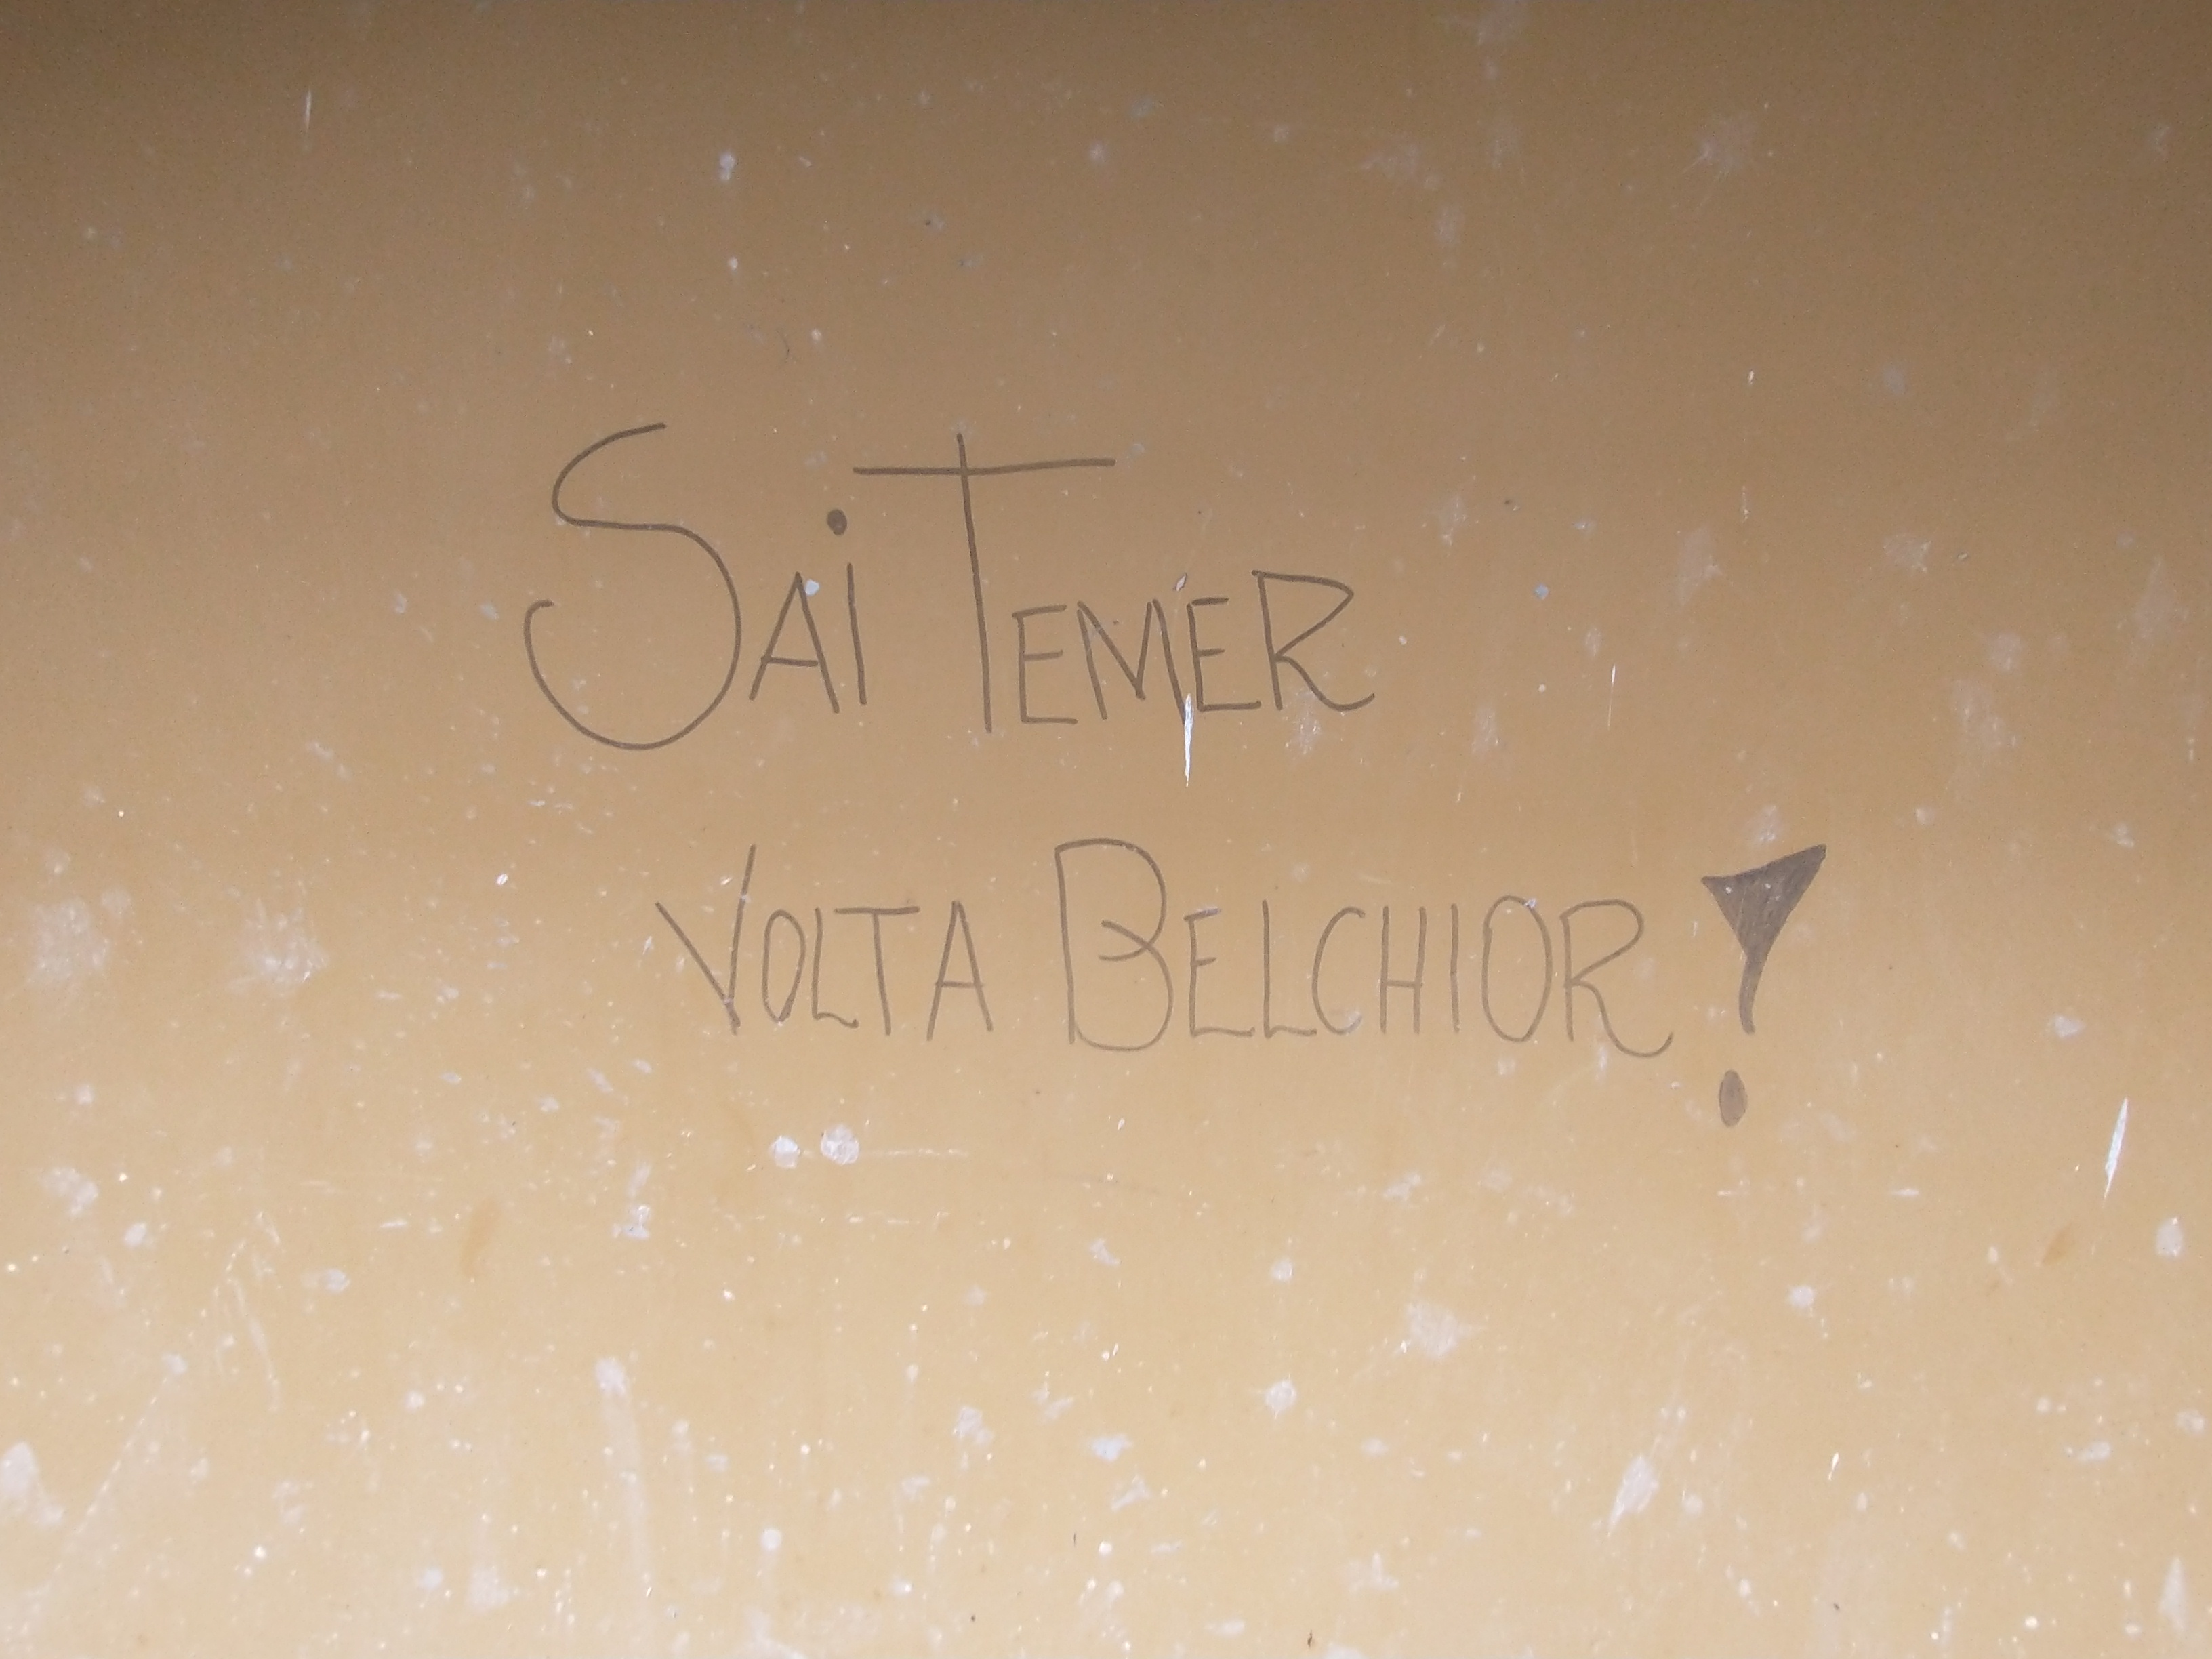 Sai TEMER
VOLTA BELCHIOR!